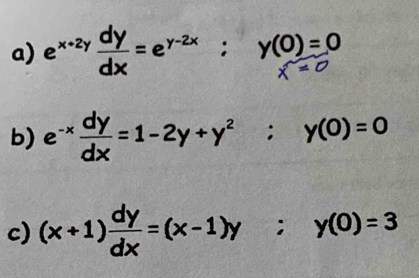 a) e^(x+2y) dy/dx = e^(y-2x) ; y(0) = 0
x = 0
b) e^(-x) dy/dx = 1 - 2y + y² ; y(0) = 0
c) (x+1) dy/dx = (x-1)y ; y(0) = 3